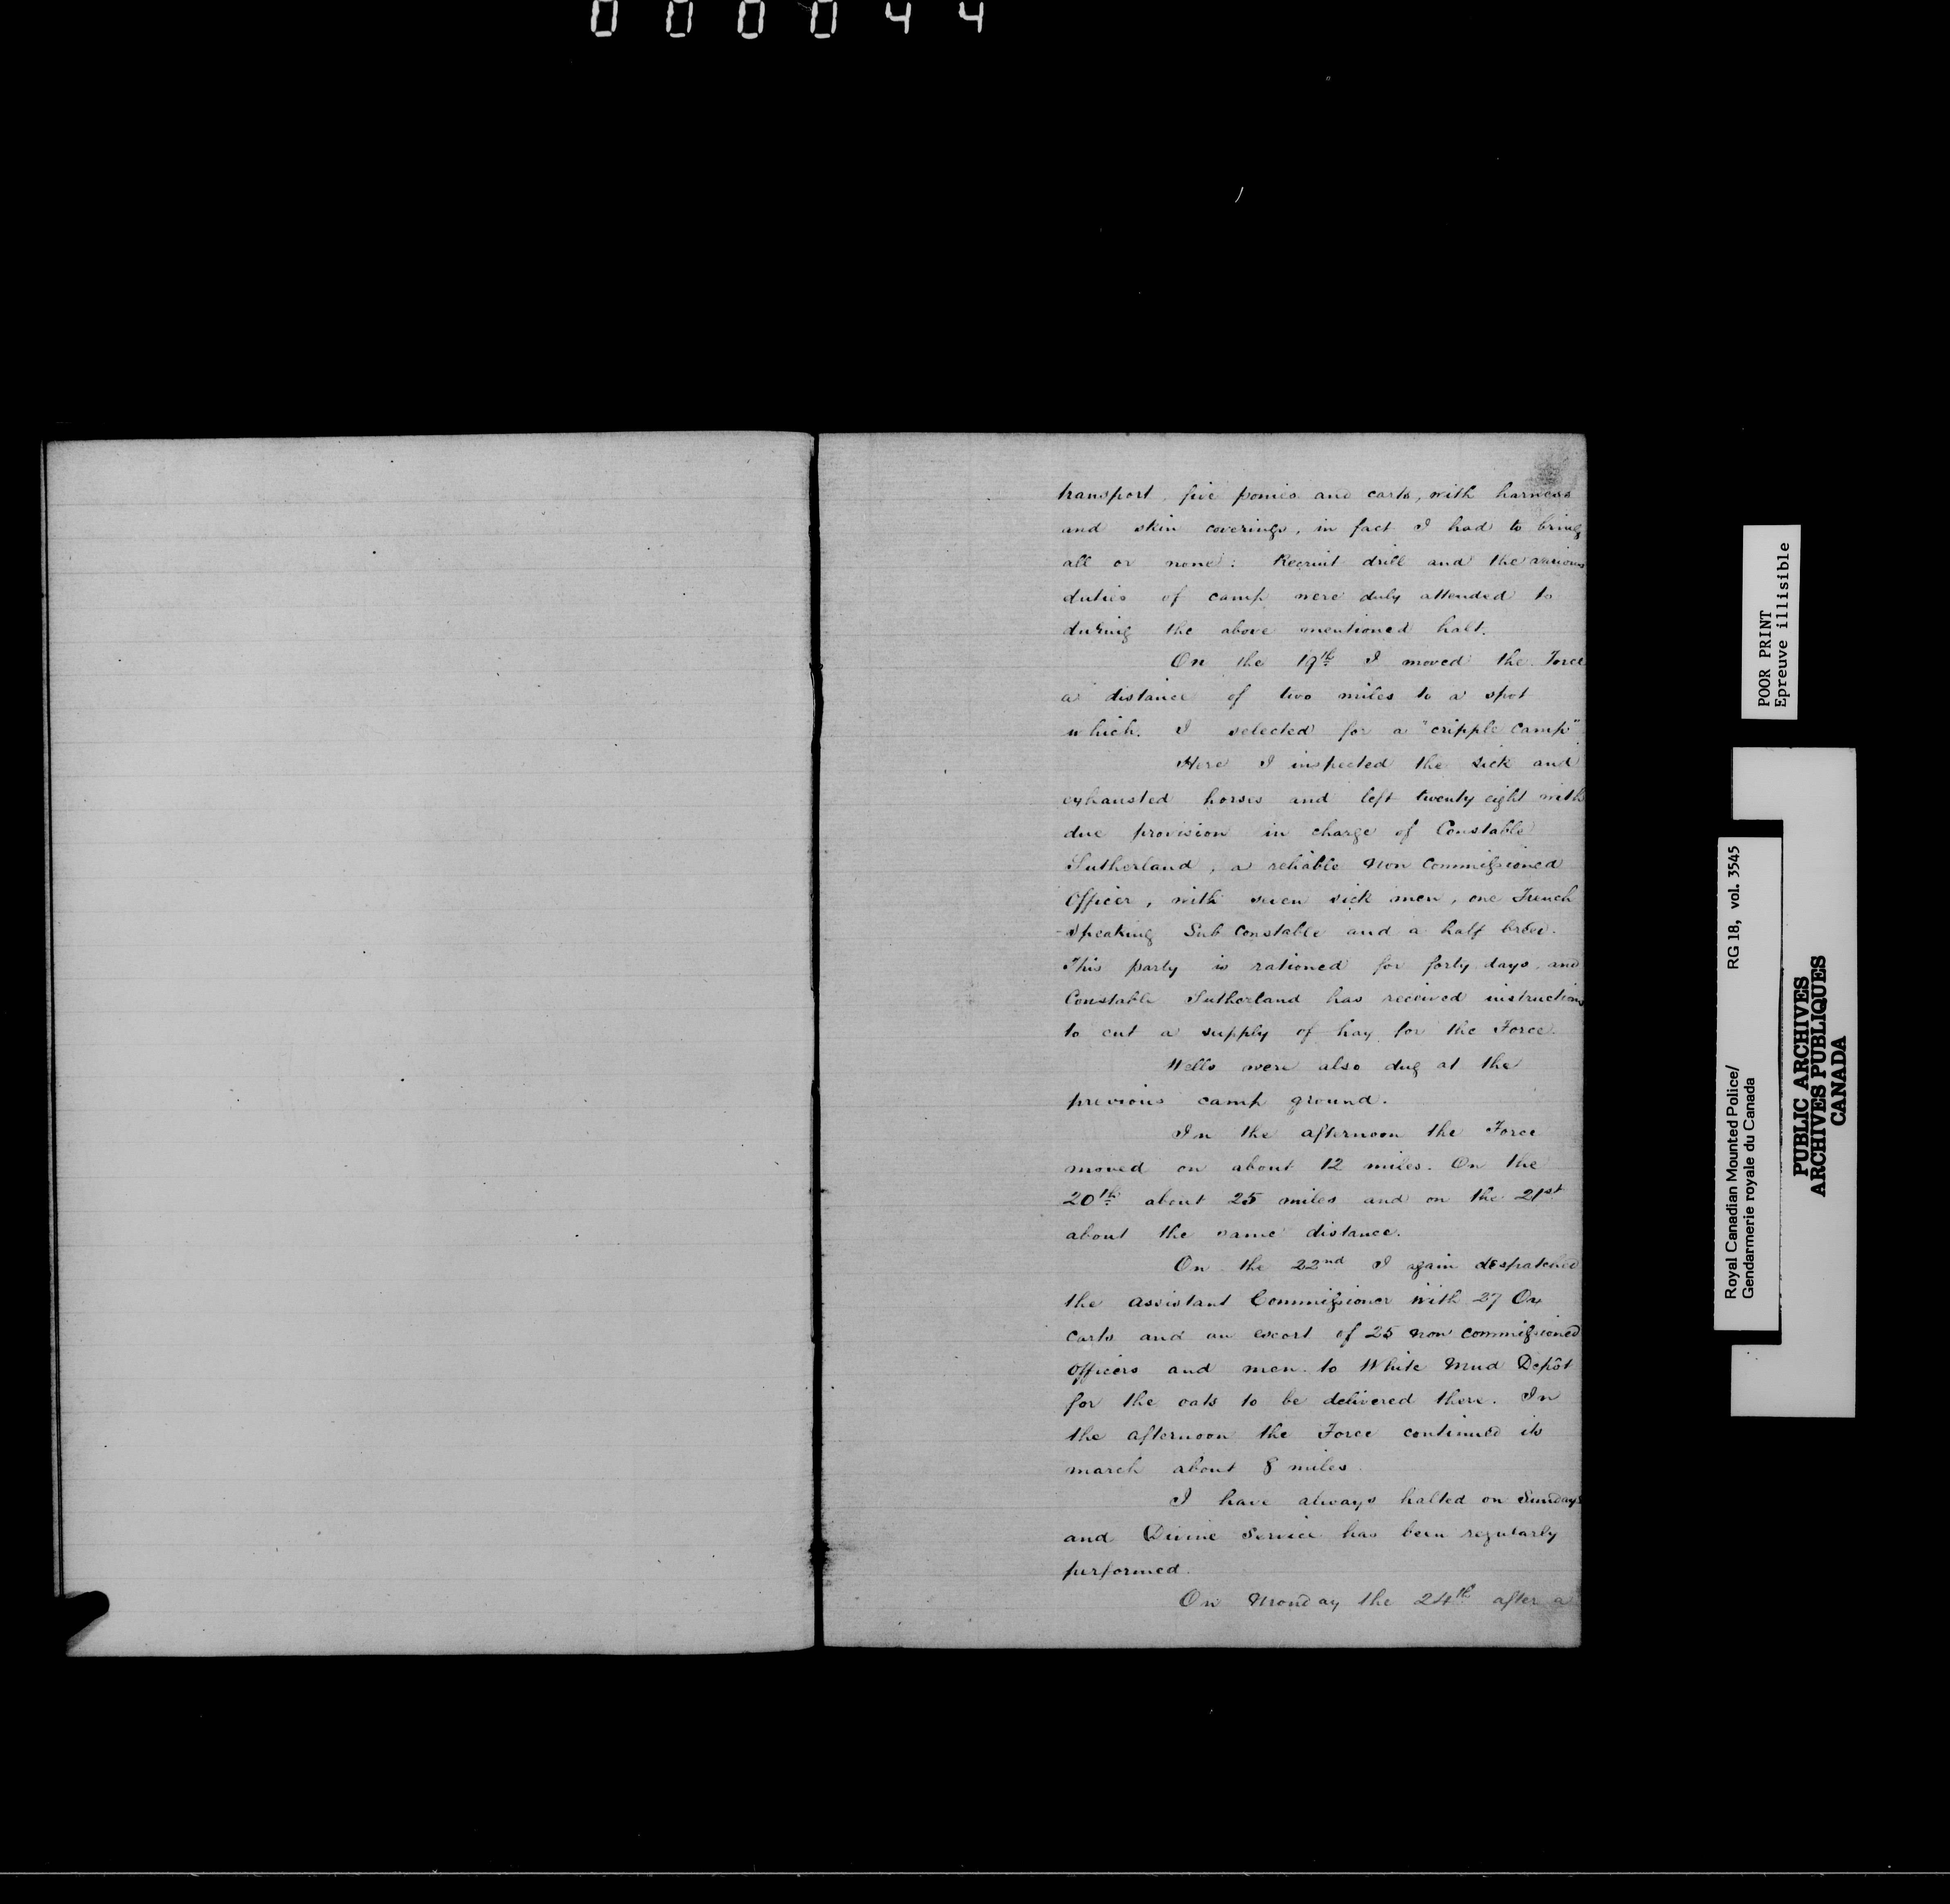 000044
transport, five ponies and carts, with harness
and skin coverings, in fact I had to bring
all or none. Recruit drill and the various
duties of camp were duly attended to
during the above mentioned halt.
On the 19th I moved the Force
a distance of two miles to a spot
which I selected for a "cripple camp"
Here I inspected the sick and
exhausted horses and left twenty eight with
due provision in charge of Constable
Sutherland, a reliable Non Commissioned
Officer, with seven sick men, one French
-speaking Sub Constable and a half breed.
This party is rationed for forty days, and
Constable Sutherland has received instructions
to cut a supply of hay for the Force.
Wells were also dug at the
previous camp ground.
In the afternoon the Force
moved on about 12 miles. On the
20th about 25 miles and on the 21st
about the same distance.
On the 22nd I again despatched
the Assistant Commissioner with 27 Ox
Carts and an escort of 25 Non Commissioned
Officers and men to White Mud Depôt
for the oats to be delivered there. In
the afternoon the Force continued its
march about 8 miles.
I have always halted on Sundays
and Divine Service has been regularly
performed.
On Monday the 24th after a
POOR PRINT
Epreuve illisible
Royal Canadian Mounted Police/ RG 18, vol. 3545
Gendarmerie royale du Canada
PUBLIC ARCHIVES
ARCHIVES PUBLIQUES
CANADA